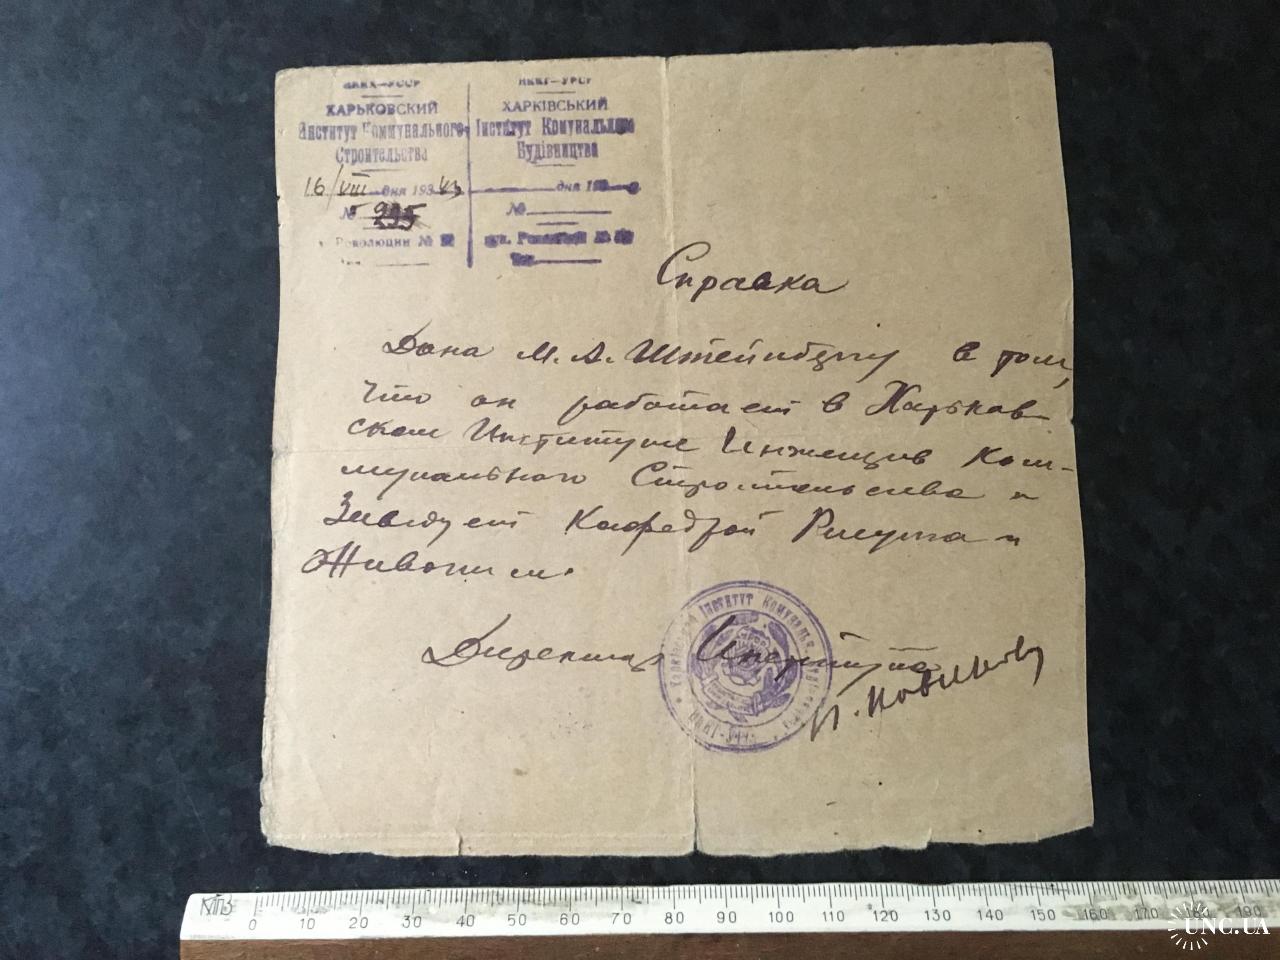 НККХ—УССР
ХАРЬКОВСКИЙ
Институт Коммунального
Строительства
16/VIII дня 193 43
№ 295
Революции №
НККГ—УРСР
ХАРКІВСЬКИЙ
Інститут Комунального
Будівництва
дня 193
№
вул. Революції №
Справка
Дана М. А. Штейнбергу в том,
что он работает в Харьков-
ском Институте Инженеров Ком-
мунального Строительства и
Заведует Кафедрой Рисунка и
Живописи.
Директор Института
П. Новиков
Харківський Інститут Комунальн. Будівництва
НККГ-УРСР
КПЗ
0 10 20 30 40 50 60 70 80 90 100 110 120 130 140 150 160 170 180 190
UNC.UA